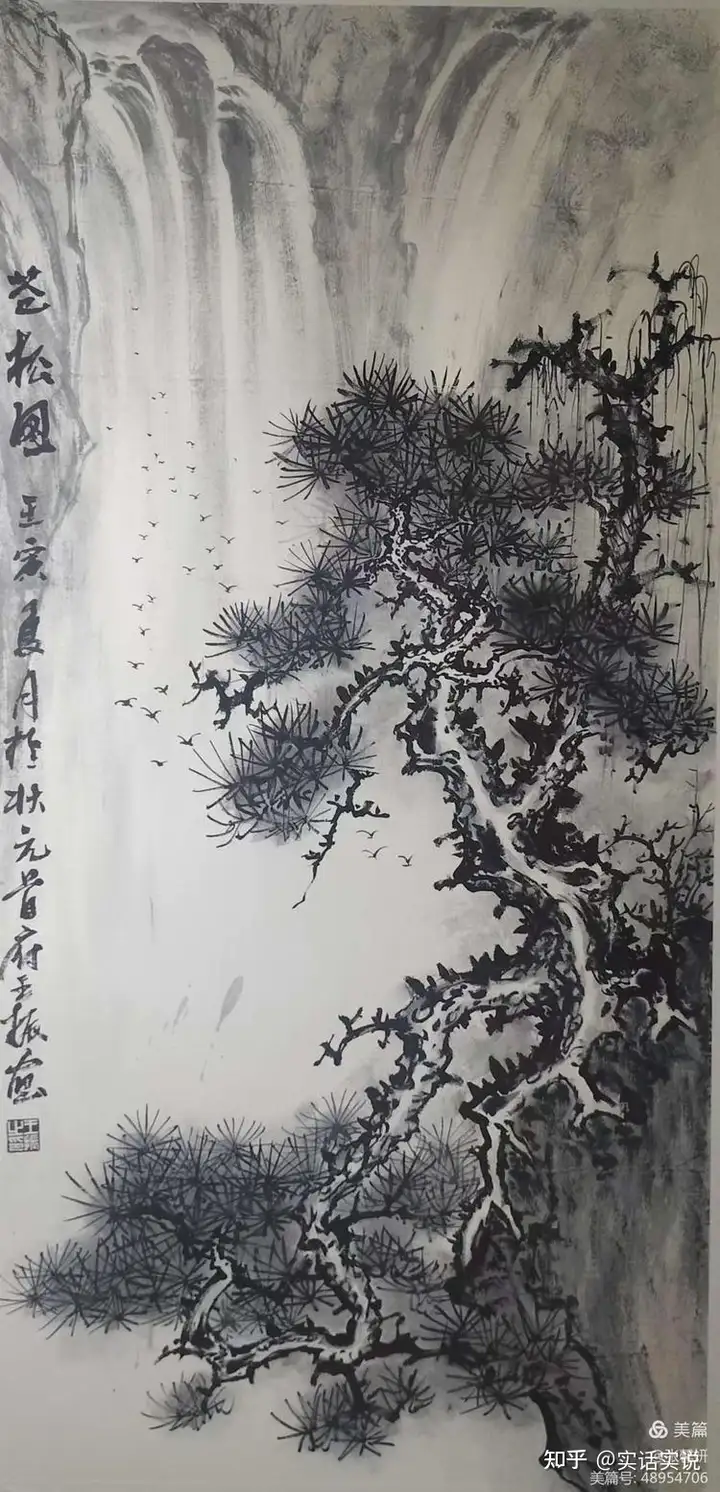 苍松图 壬寅夏月於状元首府王振
美篇
知乎 @实话实说
美篇号: 48954706